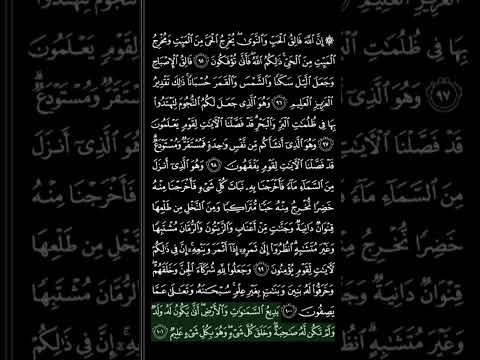 ۞ إِنَّ ٱللَّهَ فَالِقُ ٱلْحَبِّ وَٱلنَّوَىٰ ۖ يُخْرِجُ ٱلْحَىَّ مِنَ ٱلْمَيِّتِ وَمُخْرِجُ
ٱلْمَيِّتِ مِنَ ٱلْحَىِّ ۚ ذَٰلِكُمُ ٱللَّهُ ۖ فَأَنَّىٰ تُؤْفَكُونَ ٩٥ فَالِقُ ٱلْإِصْبَاحِ
وَجَعَلَ ٱلَّيْلَ سَكَنًا وَٱلشَّمْسَ وَٱلْقَمَرَ حُسْبَانًا ۚ ذَٰلِكَ تَقْدِيرُ
ٱلْعَزِيزِ ٱلْعَلِيمِ ٩٦ وَهُوَ ٱلَّذِى جَعَلَ لَكُمُ ٱلنُّجُومَ لِتَهْتَدُوا۟
بِهَا فِى ظُلُمَٰتِ ٱلْبَرِّ وَٱلْبَحْرِ ۗ قَدْ فَصَّلْنَا ٱلْءَايَٰتِ لِقَوْمٍ يَعْلَمُونَ
٩٧ وَهُوَ ٱلَّذِىٓ أَنشَأَكُم مِّن نَّفْسٍ وَٰحِدَةٍ فَمُسْتَقَرٌّ وَمُسْتَوْدَعٌ ۗ
قَدْ فَصَّلْنَا ٱلْءَايَٰتِ لِقَوْمٍ يَفْقَهُونَ ٩٨ وَهُوَ ٱلَّذِىٓ أَنزَلَ
مِنَ ٱلسَّمَآءِ مَآءً فَأَخْرَجْنَا بِهِۦ نَبَاتَ كُلِّ شَىْءٍ فَأَخْرَجْنَا مِنْهُ
خَضِرًا نُّخْرِجُ مِنْهُ حَبًّا مُّتَرَاكِبًا وَمِنَ ٱلنَّخْلِ مِن طَلْعِهَا
قِنْوَانٌ دَانِيَةٌ وَجَنَّٰتٍ مِّنْ أَعْنَابٍ وَٱلزَّيْتُونَ وَٱلرُّمَّانَ مُشْتَبِهًا
وَغَيْرَ مُتَشَٰبِهٍ ۗ ٱنظُرُوٓا۟ إِلَىٰ ثَمَرِهِۦٓ إِذَآ أَثْمَرَ وَيَنْعِهِۦٓ ۚ إِنَّ فِى ذَٰلِكُمْ
لَءَايَٰتٍ لِّقَوْمٍ يُؤْمِنُونَ ٩٩ وَجَعَلُوا۟ لِلَّهِ شُرَكَآءَ ٱلْجِنَّ وَخَلَقَهُمْ ۖ
وَخَرَقُوا۟ لَهُۥ بَنِينَ وَبَنَٰتٍۭ بِغَيْرِ عِلْمٍ ۚ سُبْحَٰنَهُۥ وَتَعَٰلَىٰ عَمَّا
يَصِفُونَ ١٠٠ بَدِيعُ ٱلسَّمَٰوَٰتِ وَٱلْأَرْضِ ۖ أَنَّىٰ يَكُونُ لَهُۥ وَلَدٌ
وَلَمْ تَكُن لَّهُۥ صَٰحِبَةٌ ۖ وَخَلَقَ كُلَّ شَىْءٍ ۖ وَهُوَ بِكُلِّ شَىْءٍ عَلِيمٌ ١٠١